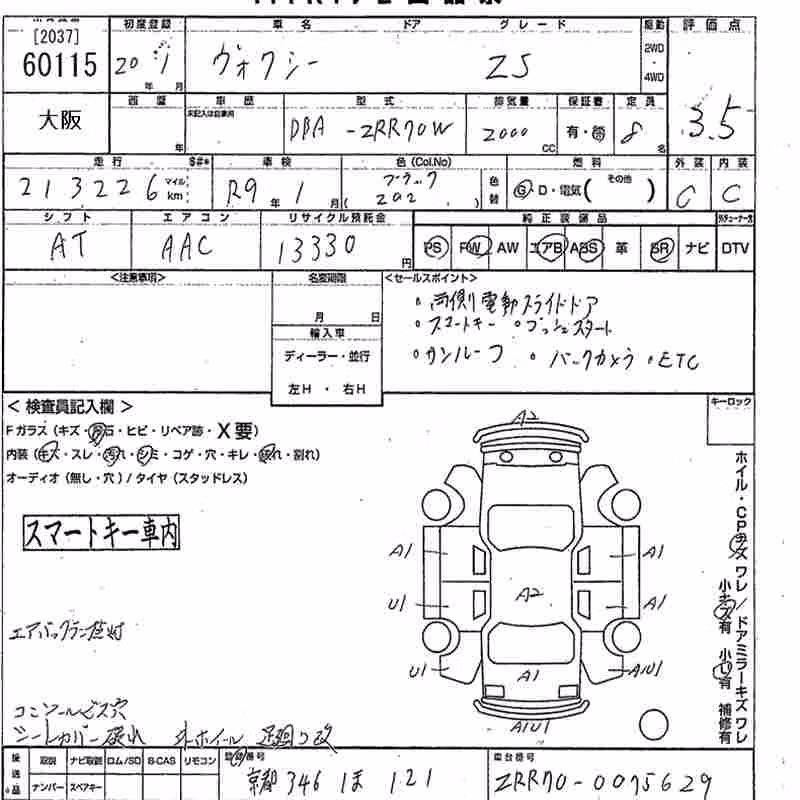 [2037]
60115
大阪
初度登録 車名 ドア グレード 駆動 評価点
20年 1月 ヴォクシー ZS 2WD・4WD 3.5
車歴 型式 排気量 保証書 定員
未記入は自家用
年 DBA-ZRR70W 2000cc 有・無 8名
走行 車検 色(Col.No) 燃料 外装 内装
213226 マイル km R9年 1月 ブラック 202 色替 G・D・電気(その他) C C
シフト エアコン リサイクル預託金 純正装備品
AT AAC 13330円 PS PW AW エアB ABS 革 SR ナビ DTV
<注意事項> 名変期限 <セールスポイント>
月 日
輸入車
ディーラー・並行
左H・右H
・両側電動スライドドア
・スマートキー ・プッシュスタート
・サンルーフ ・バックカメラ ・ETC
<検査員記入欄> キーロック
Fガラス(キズ・飛石・ヒビ・リペア跡・X要)
内装(キズ・スレ・汚れ・シミ・コゲ・穴・キレ・破れ・割れ)
オーディオ(無し・穴)/タイヤ(スタッドレス)
スマートキー車内
エアバックランプ点灯
コンソールビス穴
シートカバー破れ 社外ホイール 足廻り改
A2
A1 A1
U1 A2 A1
U1 A1 A1U1
A1U1
ホイル・CPキズ ワレ/ドアミラーキズ ワレ
小キズ有 小凹有 補修有
後送品 取説 ナビ取説 ロム/SD B-CAS リモコン 登録番号 車台番号
ナンバー スペアキー 京都 346 ほ 121 ZRR70-0075629